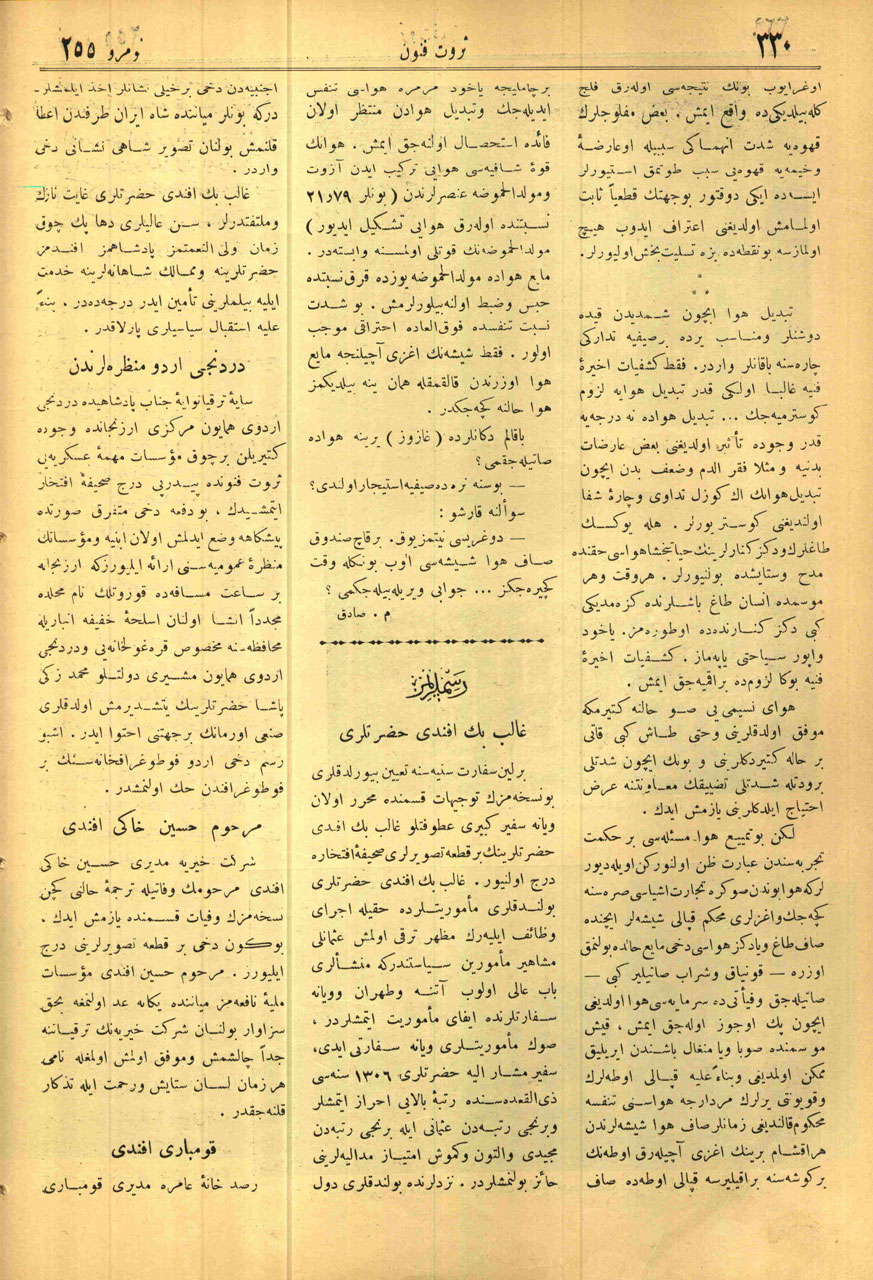 ٣٣٠
ثروت فنون
نومرو ٢٥٥
اوغرایوب بونك نتیجه‌سی اوله‌رق فلج
كله‌بیلدیكی‌ده واقع ایمش . بعض مفلوجلرك
قهوه‌یه شدت انهماكی سببیله اوعارضهٔ
وخیمه‌یه قهوه‌یی سبب طوتمق استیورلر
ایسه‌ده ایكی دوقتور بوجهتك قطعیاً ثابت
اولمامش اولدیغنی اعتراف ایدوب هیچ
اولمازسه بونقطه‌ده بزه تسلیت‌بخش اولیورلر.
* * *
تبدیل هوا ایچون شمدیدن قیده
دوشنلر ومناسب یرده برصیفیه تداركی
چاره‌سنه باقانلر واردر. فقط كشفیات اخیرهٔ
فنیه غالبا اولكی قدر تبدیل هوایه لزوم
كوسترمیه‌جك ... تبدیل هواده نه درجه‌یه
قدر وجوده تأثیر اولدیغنی بعض عارضات
بدنیه و مثلا فقر الدم وضعف بدن ایچون
تبدیل هوانك اك كوزل تداوی وچارهٔ شفا
اولدیغنی كوستریورلر . هله یوكسك
طاغلرك ودكز كنارلرینك حیاتبخشا هواسی حقنده
مدح وستایشده بولنیورلر . هروقت وهر
موسمده انسان طاغ باشلرنده كزه‌مدیكی
كبی دكز كنارنده‌ده اوطوره‌مز. یاخود
واپور سیاحتی یاپه‌ماز . كشفیات اخیرهٔ
فنیه بوكا لزوم‌ده براقمیه‌جق ایمش .
هوای نسیمی‌یی صو حالنه كتیرمكه
موفق اولدقلرینی وحتی طاش كبی قاتی
بر حاله كتیردكلرینی و بونك ایچون شدتلی
برودتله شدتلی تضییقك معاونتنه عرض
احتیاج ایلدكلرینی یازمش ایدك .
لكن بوتمییع هوا مسئله‌سی بر حكمت
تجربه‌سندن عبارت ظن اولنوركن اویله‌دیور
لركه هوا بوندن صوكره تجارت اشیاسی صره‌سنه
كچه‌جك واغزلری محكم قپالی شیشه‌لر ایچنده
صاف طاغ ویادكز هواسی دخی مایع حالده بولنمق
اوزره — قونیاق وشراب صاتیلیر كبی —
صاتیله‌جق وفیأتی‌ده سرمایه‌سی هوا اولدیغی
ایچون پك اوجوز اوله‌جق ایمش ، قیش
موسمنده صوبا ویا منغال باشندن ایریلیق
ممكن اولمدیغی وبناءً علیه قپالی اوطه‌لرك
وقویوتی یرلرك مردارجه هواسنی تنفسه
محكوم قالندیغی زمانلر صاف هوا شیشه‌لرندن
هر اقشام برینك اغزی آچیله‌رق اوطه‌نك
بر كوشه‌سنه براقیلیرسه قپالی اوطه‌ده صاف
برچاملیجه یاخود مرمره هواسی تنفس
ایدیله‌جك وتبدیل هوادن منتظر اولان
فائده استحصال اولنه‌جق ایمش . هوانك
قوهٔ شافیه‌سی هوایی تركیب ایدن آزوت
ومولد الحموضه عنصرلرندن ( بونلر ٧٩ و٢١
نسبتنده اوله‌رق هوایی تشكیل ایدیور )
مولد الحموضه‌نك قوتلی اولمسنه وابسته‌در .
مایع هواده مولدالحموضه یوزده قرق نسبتنده
حبس وضبط اولنه‌بیلورلرمش . بو شدت
نسبت تنفسده فوق‌العاده احتراقی موجب
اولور . فقط شیشه‌نك اغزی آچیلنجه مایع
هوا اوزرندن قالقمقله همان ینه بیلدیكمز
هوا حالنه كچه‌جكدر .
باقالم دكانلرده ( غازوز ) یرینه هواده
صاتیله‌جقمی ؟
— بوسنه نره‌ده صیفیه استیجار اولندی؟
سوألنه قارشو :
— دوغریسی نیتمز یوق. برقاچ صندوق
صاف هوا شیشه‌سی آلوب بونكله وقت
كچیره‌جكز ... جوابی ویریله‌بیله‌جكمی ؟
م . صادق
رسملریمز
غالب بك افندی حضرتلری
برلین سفارت سنیه‌سنه تعیین بیورلدقلری
بونسخه‌مزك توجیهات قسمنده محرر اولان
ویانه سفیر كبیری عطوفتلو غالب بك افندی
حضرتلرینك برقطعه تصویرلری صحیفهٔ افتخاره
درج اولنیور . غالب بك افندی حضرتلری
بولندقلری مأموریتلرده حقیله اجرای
وظائف ایلیه‌رك مظهر ترقی اولمش عثمانلی
مشاهیر مأمورین سیاستندركه منشألری
باب عالی اولوب آتنه وطهران وویانه
سفارتلرنده ایفای مأموریت ایتمشلردر ،
صوك مأموریتلری ویانه سفارتی ایدی،
سفیر مشار الیه حضرتلری ١٣٠٦ سنه‌سی
ذی‌القعده‌سنده رتبهٔ بالایی احراز ایتمشلر
وبرنجی رتبه‌دن عثمانی ایله برنجی رتبه‌دن
مجیدی والتون وكموش امتیاز مدالیه‌لرینی
حائز بولنمشلردر . نزدلرنده بولندقلری دول
اجنبیه‌دن دخی برخیلی نشانلر اخذ ایلمشلر-
دركه بونلر میاننده شاه ایران طرفندن اعطا
قلنمش بولنان تصویر شاهی نشانی دخی
واردر .
غالب بك افندی حضرتلری غایت نازك
وملتفتدرلر ، سن عالیلری دها پك چوق
زمان ولی‌النعمتمز پادشاهمز افندیمز
حضرتلرینه وممالك شاهانه‌لرینه خدمت
ایلیه بیلملرینی تأمین ایدر درجه‌ده‌در . بناءً
علیه استقبال سیاسیلری پارلاقدر .
دردنجی اردو منظره‌لرندن
سایهٔ ترقیاتوایهٔ جناب پادشاهیده دردنجی
اردوی همایون مركزی ارزنجانده وجوده
كتیریلن برچوق مؤسسات مهمهٔ عسكریه‌یی
ثروت فنونده پیدرپی درج صحیفهٔ افتخار
ایتمشیدك ، بودفعه دخی متفرق صورتده
پیشكاهه وضع ایدلمش اولان ابنیه ومؤسساتك
منظرهٔ عمومیه‌سنی ارائه ایلیورزكه ارزنجانه
بر ساعت مسافه‌ده قوروتلك نام محلده
مجدداً انشا اولنان اسلحهٔ خفیفه انبارلیه
محافظه‌سنه مخصوص قره‌غولخانه‌یی ودردنجی
اردوی همایون مشیری دولتلو محمد زكی
پاشا حضرتلرینك یتشدیرمش اولدقلری
صنعی اورمانك برجهتنی احتوا ایدر . اشبو
رسم دخی اردو فوطوغرافخانه‌سنك بر
فوطوغرافندن حك اولنمشدر .
مرحوم حسین خاكی افندی
شركت خیریه مدیری حسین خاكی
افندی مرحومك وفاتیله ترجمهٔ حالنی كچن
نسخه‌مزك وفیات قسمنده یازمش ایدك .
بوكون دخی بر قطعه تصویرلرینی درج
ایلیورز . مرحوم حسین افندی مؤسسات
ملیهٔ نافعه‌مز میاننده یكانه عد اولنمغه بحق
سزاوار بولنان شركت خیریه‌نك ترقیاتنه
جداً چالشمش وموفق اولمش اولمغله نامی
هر زمان لسان ستایش ورحمت ایله تذكار
قلنه‌جقدر .
قومباری افندی
رصد خانهٔ عامره مدیری قومباری